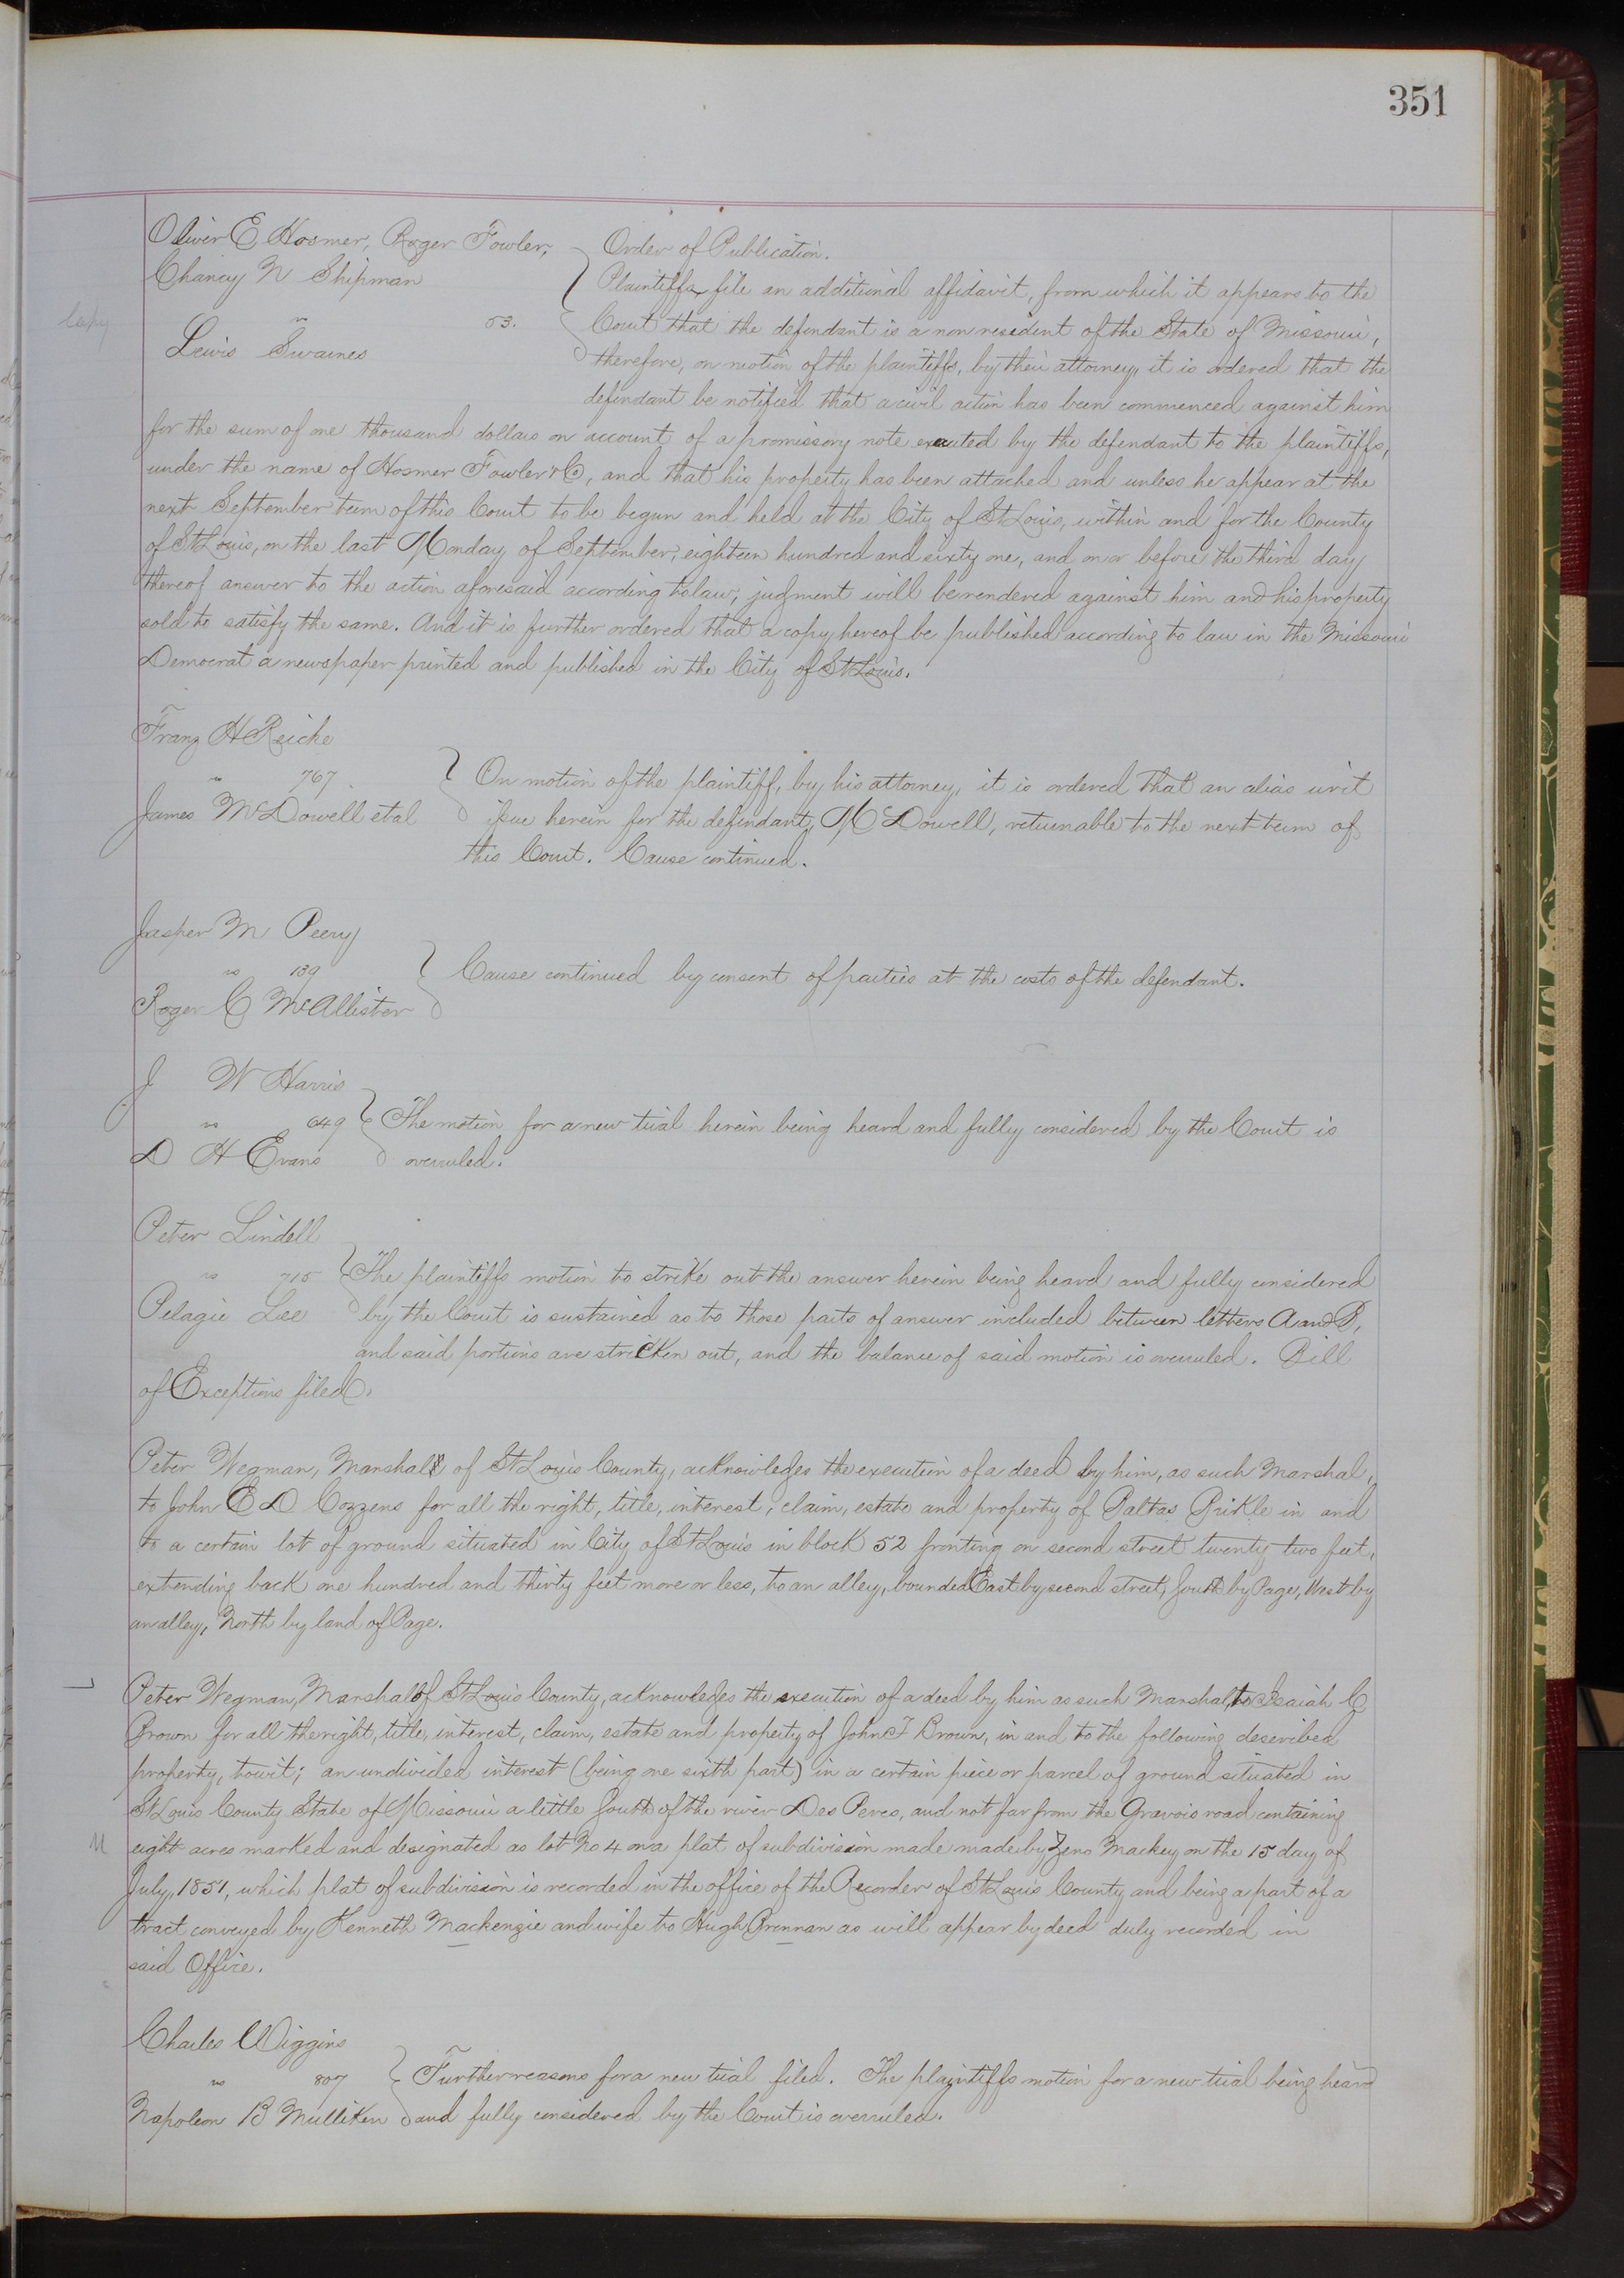 351
Oliver E Hosmer, Roger Fowler,
Chancy N Shipman
vs 53.
Lewis Swaines
Order of Publication.
Plaintiffs file an additional affidavit, from which it appears to the
Court that the defendant is a non resident of the State of Missouri,
therefore, on motion of the plaintiffs, by their attorney, it is ordered that the
defendant be notified that a civil action has been commenced against him
for the sum of one thousand dollars on account of a promissory note executed by the defendant to the plaintiffs,
under the name of Hosmer Fowler & Co, and that his property has been attached and unless he appear at the
next September term of this Court to be begun and held at the City of St Louis, within and for the County
of St Louis, on the last Monday of September, eighteen hundred and sixty one, and on or before the third day
thereof answer to the action aforesaid according to law, judgment will be rendered against him and his property
sold to satisfy the same. And it is further ordered that a copy hereof be published according to law in the Missouri
Democrat a newspaper printed and published in the City of St Louis.
Copy
Franz H Reiche
vs 767
James McDowell et al
On motion of the plaintiff, by his attorney, it is ordered that an alias writ
issue herein for the defendant, McDowell, returnable to the next term of
this Court. Cause continued.
Jasper M Peery
vs 139
Roger C McAllister
Cause continued by consent of parties at the costs of the defendant.
J W Harris
vs 649
D H Evans
The motion for a new trial herein being heard and fully considered by the Court is
overruled.
Peter Lindell
vs 715
Pelagie Lee
The plaintiffs motion to strike out the answer herein being heard and fully considered
by the Court is sustained as to those parts of answer included between letters A and B,
and said portions are stricken out, and the balance of said motion is overruled. Bill
of Exceptions filed.
Peter Wegman, Marshal of St Louis County, acknowledges the execution of a deed by him, as such Marshal,
to John E D Cozzens for all the right, title, interest, claim, estate and property of Baltas Brikle in and
to a certain lot of ground situated in City of St Louis in block 52 fronting on second street twenty two feet,
extending back one hundred and thirty feet more or less, to an alley, bounded East by second street, South by Page, West by
an alley, North by land of Page.
Peter Wegman, Marshal of St Louis County, acknowledges the execution of a deed by him as such Marshal, to Isaiah C
Brown for all the right, title, interest, claim, estate and property of John F Brown, in and to the following described
property, towit; an undivided interest (being one sixth part) in a certain piece or parcel of ground situated in
St Louis County State of Missouri a little South of the river Des Peres, and not far from the Gravois road containing
eight acres marked and designated as lot No 4 on a plat of subdivision made made by Zeno Mackey on the 15 day of
July, 1851, which plat of subdivision is recorded in the office of the Recorder of St Louis County and being a part of a
tract conveyed by Kenneth Mackenzie and wife to Hugh Brennan as will appear by deed duly recorded in
said Office.
Charles Wiggins
vs 807
Napoleon B Mulliken
Further reasons for a new trial filed. The plaintiffs motion for a new trial being heard
and fully considered by the Court is overruled.